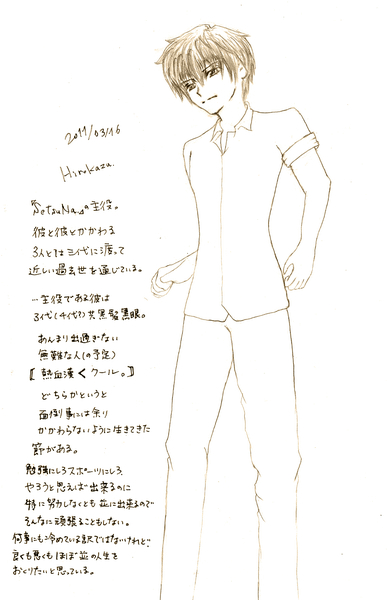 2011/03/16
Hirokazu.
『SetsuNa』の主役。
彼と彼とかかわる
3人とは三代に渡って
近しい過去世を通じている。
一主役である彼は
3代(4代?)共黒髪黒眼。
あんまり出過ぎない
無難な人(の予定)
〚熱血漢くクール。〛
どちらかというと
面倒事には余り
かかわらないように生きてきた
節がある。
勉強にしろスポーツにしろ
やろうと思えば出来るのに
特に努力しなくとも並に出来るので
そんなに頑張ることもしない。
何事にも冷めている訳ではないけれど
良くも悪くもほぼ並の人生を
おくりたいと思っている。